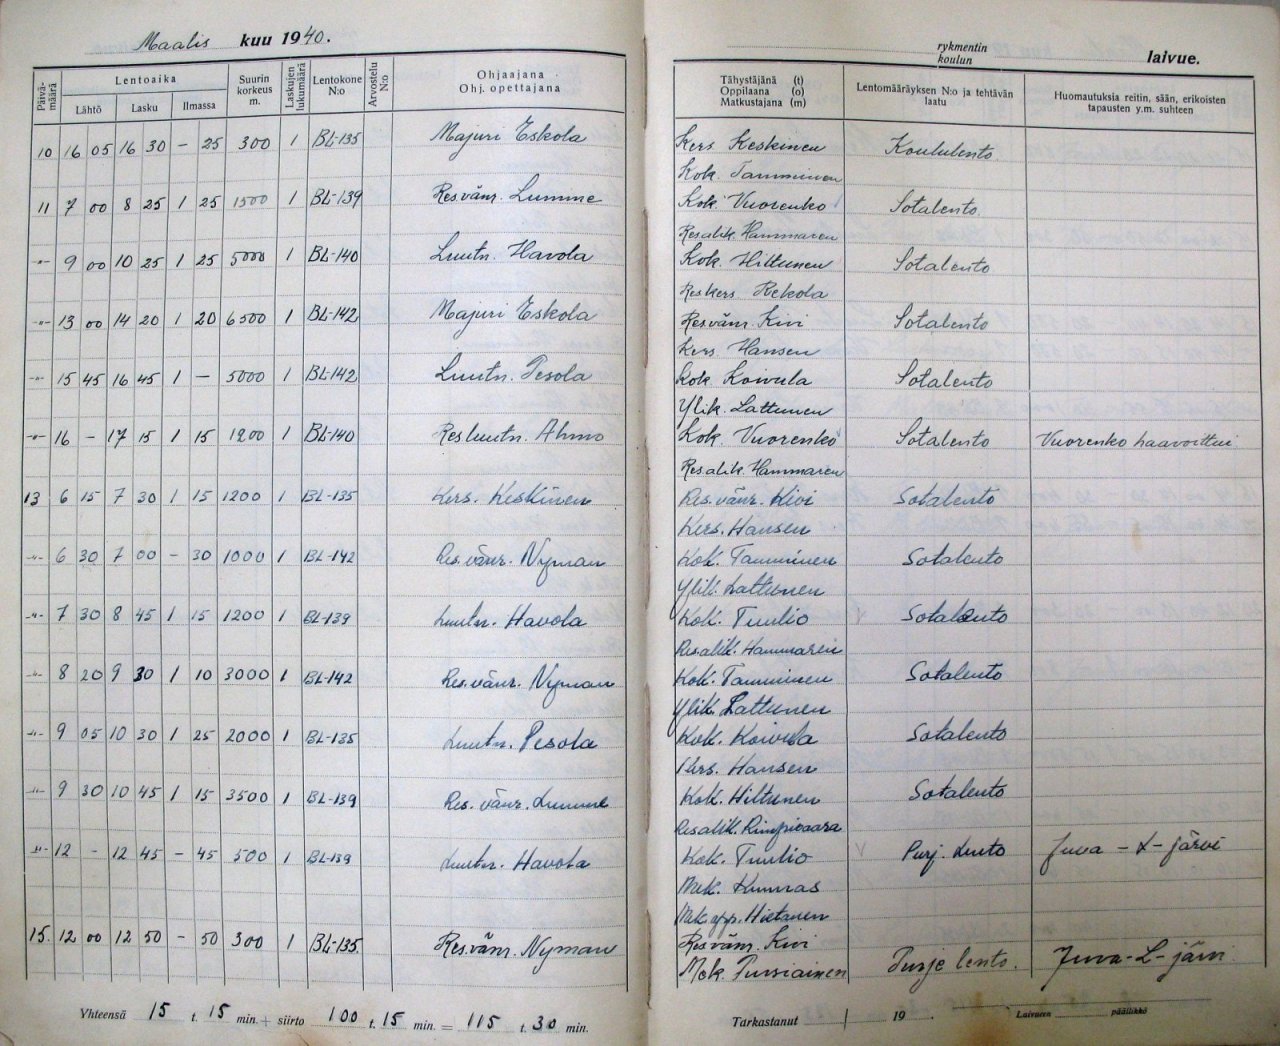 Maalis kuu 1940.
rykmentin
koulun
laivue.
Päivä-määrä
Lentoaika
Lähtö Lasku Ilmassa
Suurin korkeus m.
Laskujen lukumäärä
Lentokone N:o
Arvostelu N:o
Ohjaajana
Ohj. opettajana
Tähystäjänä (t)
Oppilaana (o)
Matkustajana (m)
Lentomääräyksen N:o ja tehtävän laatu
Huomautuksia reitin, sään, erikoisten tapausten y.m. suhteen
10 16 05 16 30 – 25 300 1 BL-135 Majuri Eskola Kers Keskinen Koululento.
Kok. Tamminen
11 7 00 8 25 1 25 1500 1 BL-139 Res.vänr. Lumme Kok. Vuorenko Sotalento.
Res.alik. Hammaren
-"- 9 00 10 25 1 25 5000 1 BL-140 Luutn. Havola Kok. Hiltunen Sotalento
Res kers Rekola
-"- 13 00 14 20 1 20 6500 1 BL-142 Majuri Eskola Res vänr. Kivi Sotalento
Kers Hansen
-"- 15 45 16 45 1 – 5000 1 BL-142 Luutn. Pesola Kok. Koivula Sotalento
Ylik. Lattunen
-"- 16 – 17 15 1 15 1200 1 BL-140 Res luutn. Ahmo Kok. Vuorenko Sotalento Vuorenko haavoittui
Res.alik. Hammaren
13 6 15 7 30 1 15 1200 1 BL-135 Kers. Keskinen Res. vänr. Kivi Sotalento
Kers. Hansen
-"- 6 30 7 00 – 30 1000 1 BL-142 Res. vänr. Nyman Kok. Tamminen Sotalento
Ylik. Lattunen
-"- 7 30 8 45 1 15 1200 1 BL-139 Luutn. Havola Kok. Tuulio Sotalento
Res.alik. Hammaren
-"- 8 20 9 30 1 10 3000 1 BL-142 Res.vänr. Nyman Kok. Tamminen Sotalento
Ylik. Lattunen
-"- 9 05 10 30 1 25 2000 1 BL-135 Luutn. Pesola Kok. Koivula Sotalento
Kers. Hansen
-"- 9 30 10 45 1 15 3500 1 BL-139 Res. vänr. Lumme Kok. Hiltunen Sotalento
Res alik. Rimpivaara
-"- 12 – 12 45 – 45 500 1 BL-139 Luutn. Havola Kok. Tuulio Purj. Lento Juva – L – järvi
Mek. Kunnas
Mek.app. Hietanen
15. 12 00 12 50 – 50 300 1 BL-135. Res.vänr. Nyman Res vänr. Kivi
Mek. Pursiainen Purje lento. Juva-L-järvi.
Yhteensä 15 t. 15 min. + siirto 100 t. 15 min. = 115 t. 30 min.
Tarkastanut / 19 . Laivueen päällikkö